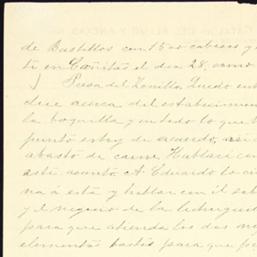 de Bastillos con 1500 cabezas y
te en Cañitas el dia 28, como
Pasa del Zorrillo Quedo
dice acerca del establecimien
la boquilla y en todo lo que
punto estoy de acuerdo,
abasto de carne. Hablaré con
este asunto. A Eduardo lo
na á ésta y hablar con él sob
y el negocio de la lechugui
para que atienda los dos
elementos bastos para que